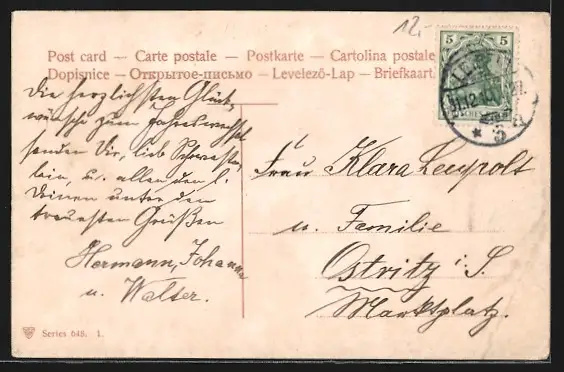 12,-
Post card — Carte postale — Postkarte — Cartolina postale
Dopisnice — Открытое-письмо — Levelező-Lap — Briefkaart
5 5
Die herzlichsten Glück-
wünsche zum Jahreswechsel
senden Dir, lieb Schwester-
lein, u. allen den l.
Deinen unter den
treuesten Grüßen
Hermann, Johanna
u. Walter.
Frau Klara Leupolt
u. Familie
Ostritz i. S.
Marktplatz.
Series 648. 1.